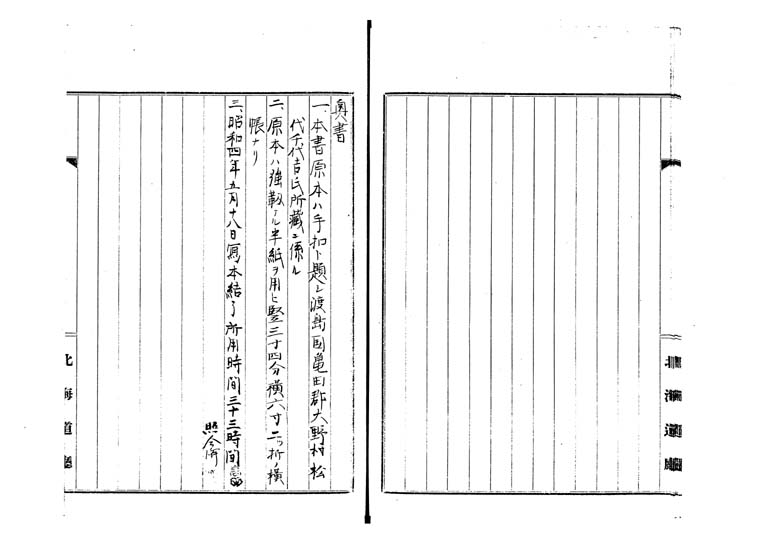 奥書
一、本書原本ハ手扣ト題シ渡島国亀田郡大野村松
代千代吉氏所蔵ニ係ル
二、原本ハ強靱ナル半紙ヲ用ヒ竪三寸四分横六寸二ツ折ノ横
帳ナリ
三、昭和四年五月十八日寫本結了所用時間三十三時間
照合済
北海道廳
北海道廳